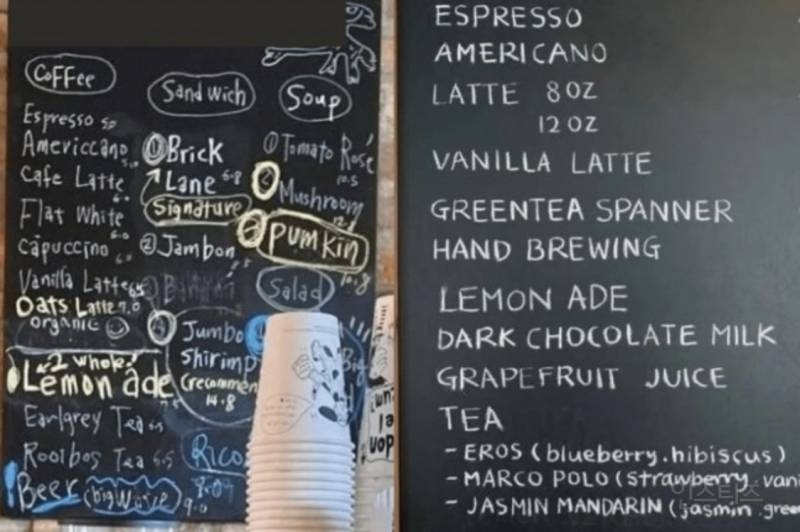 Coffee
Espresso 5.0
Americcano 5.0
Cafe Latte 6.0
Flat White 6.0
Capuccino 6.0
Vanilla Latte 6.5
Oats Latte 7.0
organic
2 whole!
Lemon ade
Earlgrey Tea 6.5
Rooibos Tea 6.5
Beer (big wave) 9.0
Sandwich
① Brick
Lane 6.8
Signature
② Jambon
④ Jumbo
Shirimp
(recommen
14.8
Rico
Soup
① Tomato Rosé
10.5
② Mushroom
③ Pumkin
10.8
Salad
Big
la
ESPRESSO
AMERICANO
LATTE 8 OZ
12 OZ
VANILLA LATTE
GREENTEA SPANNER
HAND BREWING
LEMON ADE
DARK CHOCOLATE MILK
GRAPEFRUIT JUICE
TEA
- EROS (blueberry.hibiscus)
- MARCO POLO (strawberry vani
- JASMIN MANDARIN (jasmin.green
인스티즈